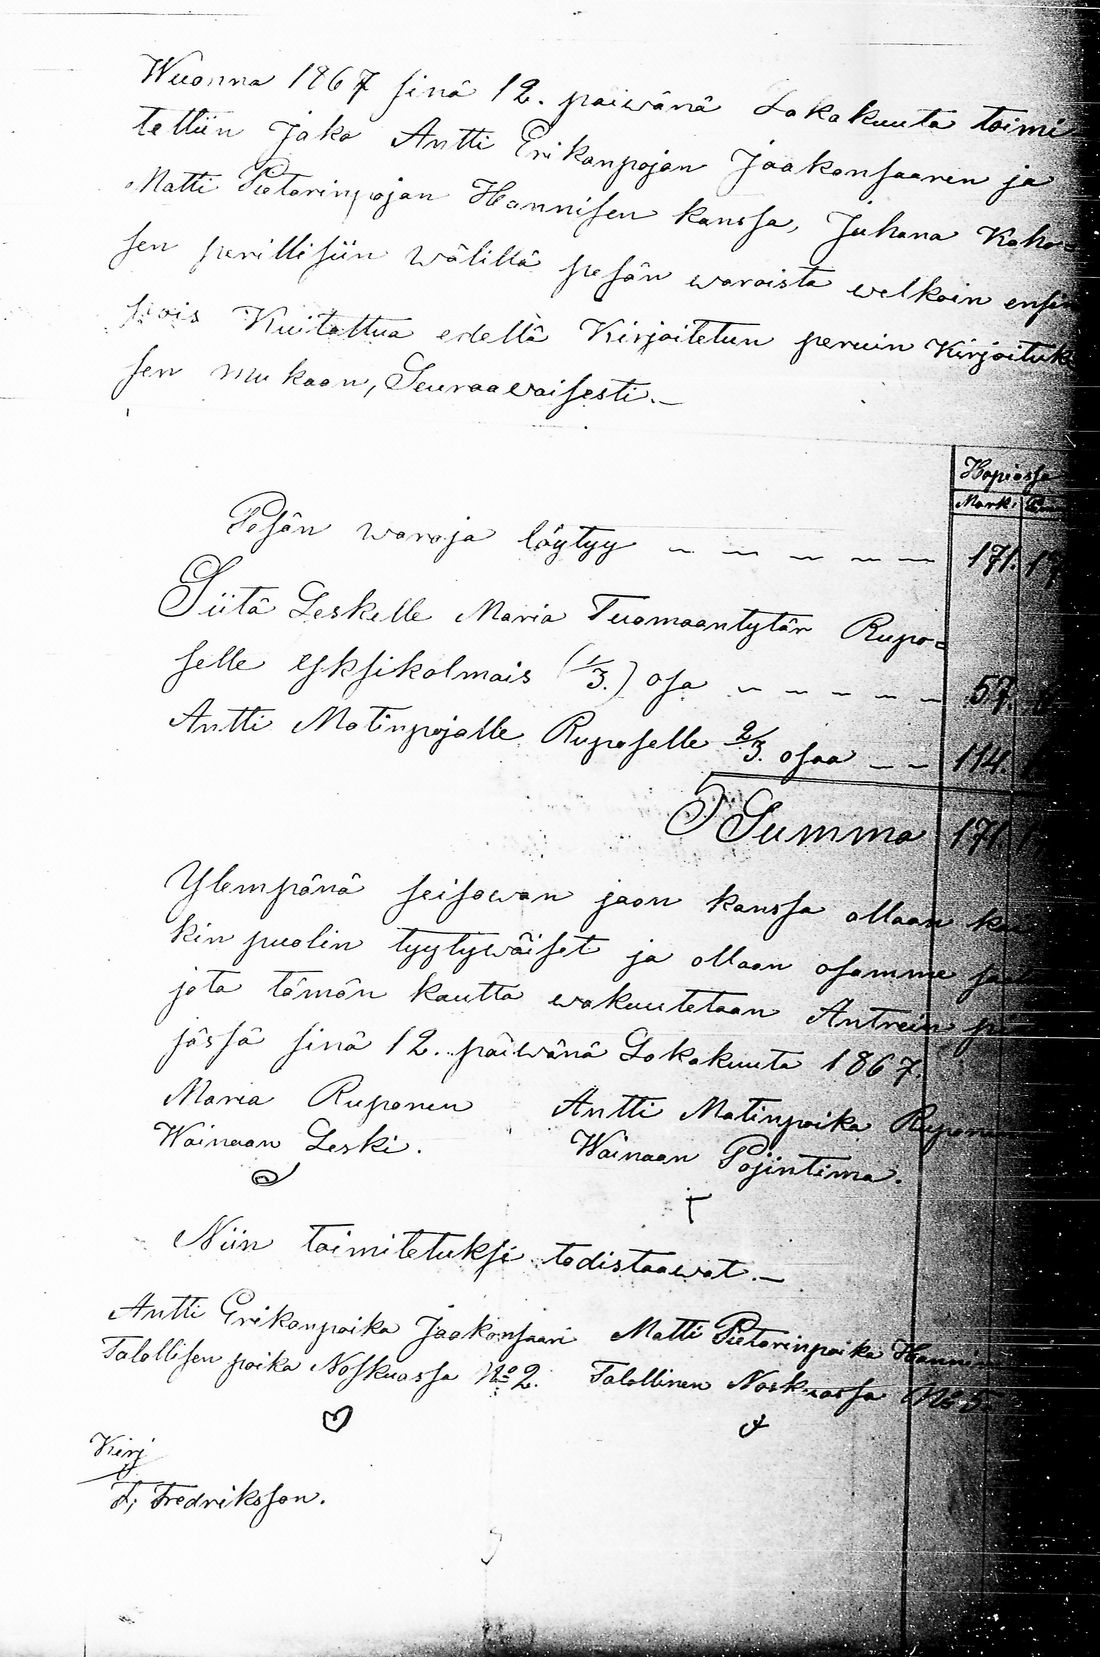 Wuonna 1867 sinä 12. päiwänä Lokakuuta toimi-
tettiin Jako Antti Erikanpojan Jaakonsaaren ja
Matti Pietarinpojan Hannisen kanssa, Juhana Koho-
sen perillisiin wälillä pesän waroista welkoin ensin
pois Kuitattua edellä Kirjoitetun peruin Kirjoituk-
sen mukaan, Seuraawaisesti.—
Hopiassa
Mark:
Pesän waroja löytyy — — — — — 171. 17
Siitä Leskelle Maria Tuomaantytär Rupo=
selle yksikolmais (1/3.) osa — — — — — 57.
Antti Matinpojalle Ruposelle 2/3. osaa — — 114.
Summa 171. 17
Ylempänä seisowan jaon kanssa ollaan
kin puolin tyytywäiset ja ollaan osamme
jota tämän kautta wakuutetaan Antrein
jässä sinä 12. päiwänä Lokakuuta 1867.
Maria Ruponen Antti Matinpoika Ruponen
Wainaan Leski. Wainaan Pojintima.
Niin toimitetuksi todistaawat.—
Antti Erikanpoika Jaakonsaari Matti Pietarinpoika Hanninen
Talollisen poika Noskuassa No 2. Talollinen Noskuassa No 5.
Kirj
F; Fredriksson.